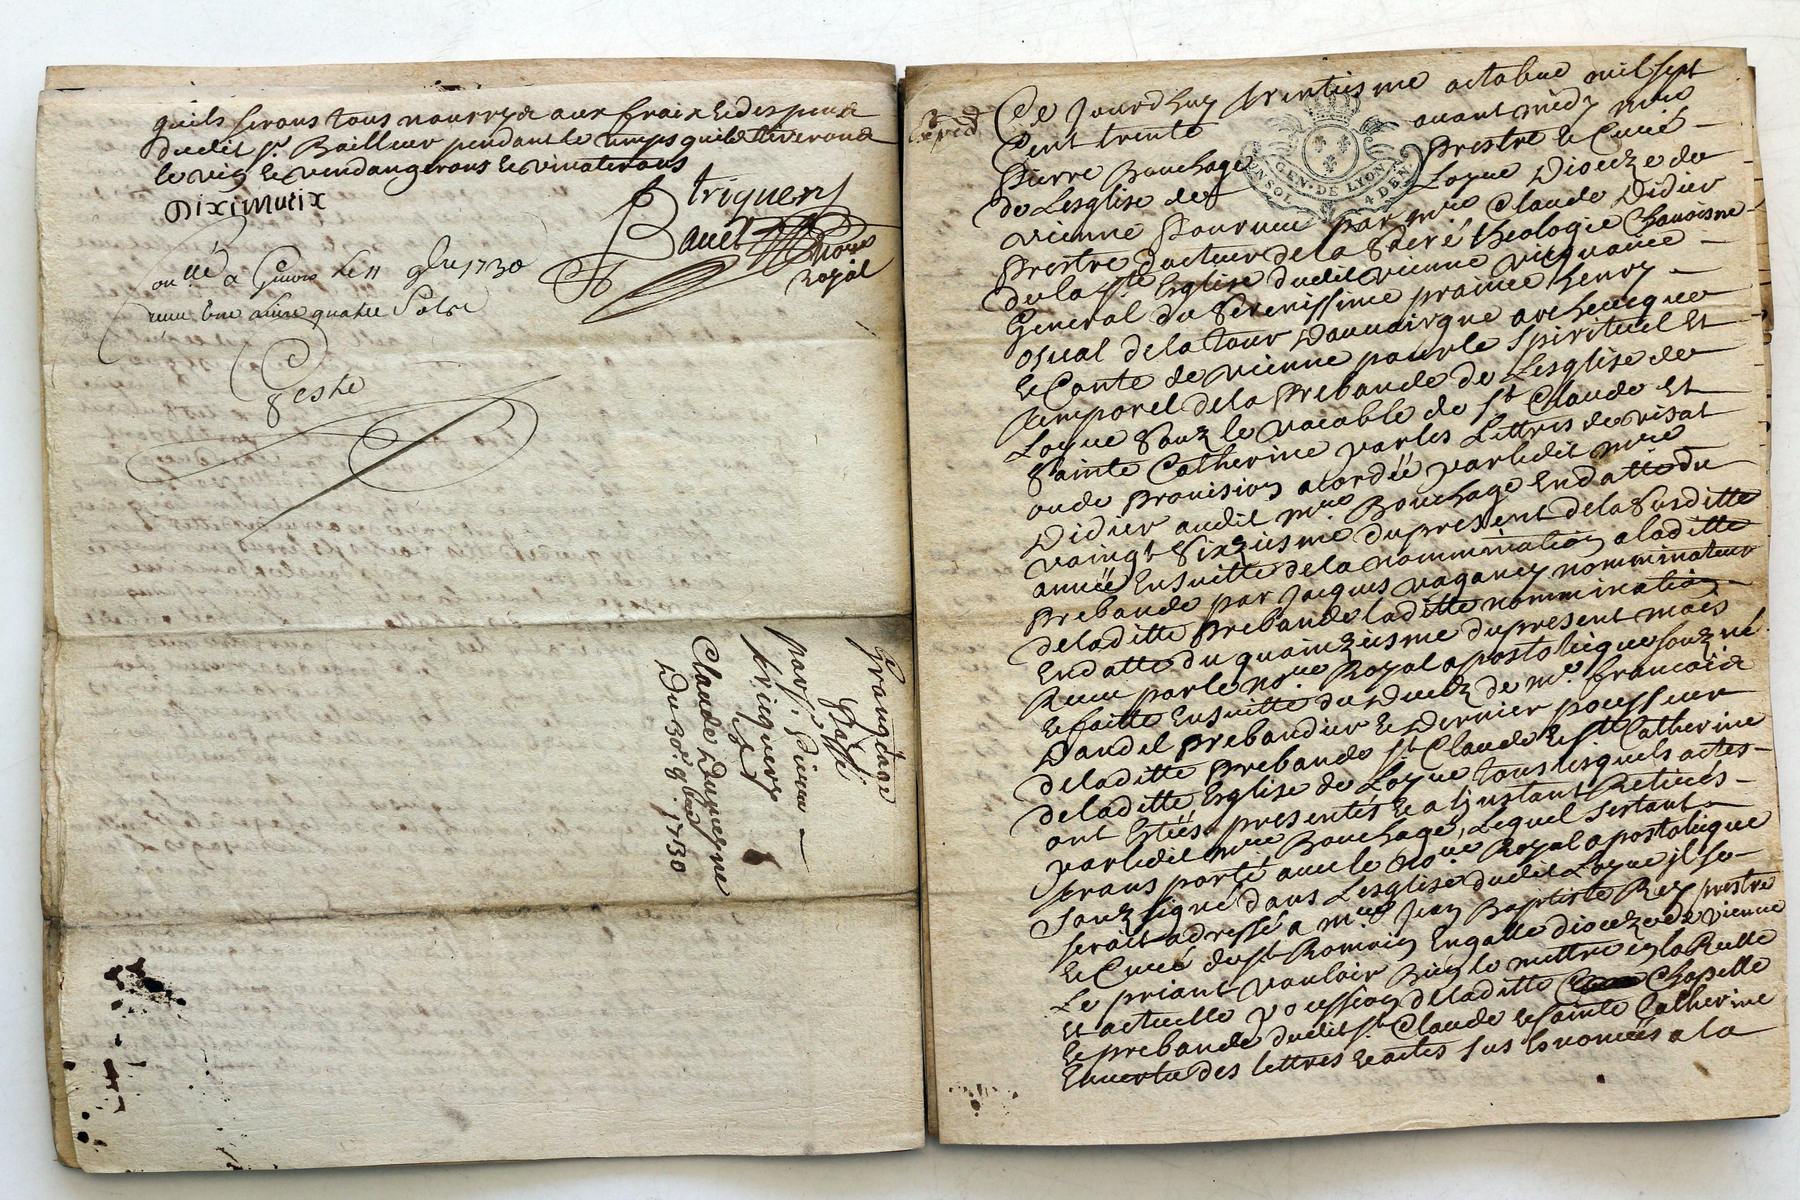 quils serons tous nourrys aux fraix & despend
dudit sr. Bailleur pendant le temps quils leverond
le vin & vendangerons & vinaterons
Triquery
Bauet
Royal
a Givors le 11 9bre 1730
Reçu une livre quatre Sols
Grangeage
Passé
par sr. Pierre
Triquery
a
Claude
Du 30e 8bre 1730
Exped
Ce Jourdhuy trentiesme octobre mil sept
Cent trente avant midy mre
Pierre Bouchage Prestre & Curé
de Lesglise de Loyue Dioceze de
GEN. DE LYON
4 DEN
Vienne Pourveu par mre Claude Didier
Prestre Docteur de la Sacré theologie Chanoisne
de la ste Eglise dudit Vienne viquaire
General du Serenissime prince henry
osual de la tour Dauvairgne archeveque
& Conte de vienne pour le Spirituel Et
Temporel de la Prebande de Lesglise de
Loyue Souz le vocable de st Claude et
Sainte Catherine par les Lettres de visat
ou de provision acordée par ledit mre
Didier audit mre Bouchage En datte du
vaingt Sixziesme du present de la Susditte
année Ensuitte de la nommination a laditte
Prebande par Jacques vaganey nomminateur
de laditte Prebande laditte nommination
En datte du quainziesme du present mois
Reçue par le nore Royal apostolique souz né
& faitte Ensuitte du Decez de mre francois
Dandel prebandier & Dernier pocesseur
de laditte Prebande st Claude & ste Catherine
de laditte Eglise de Loyue tous lesquels actes
ont Estées presentés & a l'instant Retirés
par ledit mre Bouchage, Lequel sestant
transporté avec le nore Royal apostolique
souz signé dans Lesglise dudit Loyue il se
seroit adressé a mre Jean Baptiste Rey prestre
& Curé de st Romain En galle dioceze de vienne
Le priant vouloir Bien le mettre en la Reelle
et actuelle pocession de laditte Chapelle
& prebande dudit st Claude & Sainte Catherine
En vertu des lettres & actes sus Enoncées a la